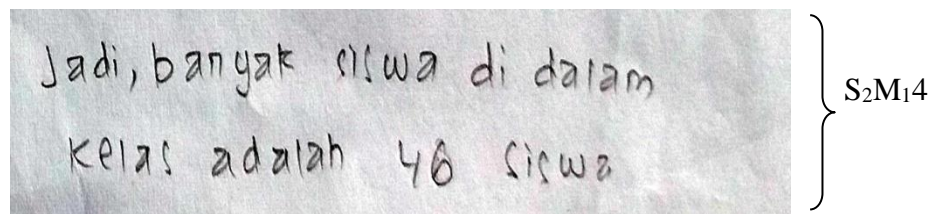 Jadi, banyak siswa di dalam
kelas adalah 46 siswa
S₂M₁4